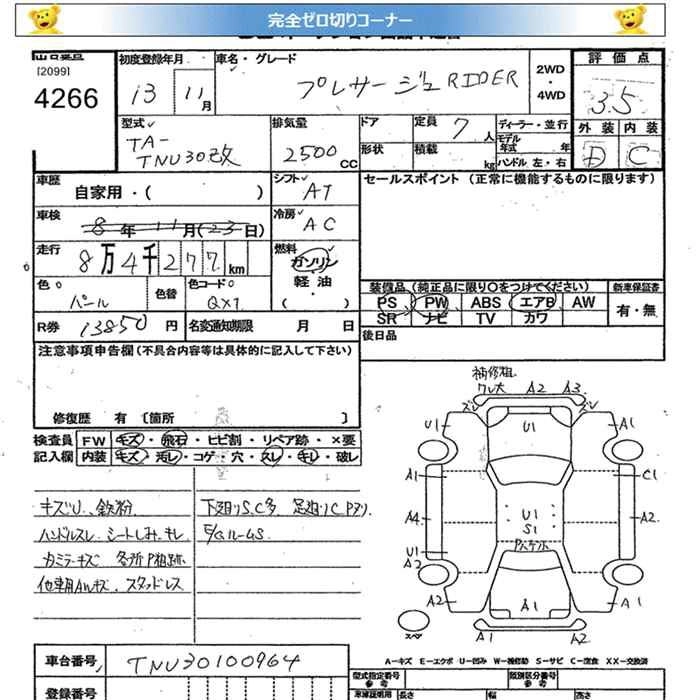 完全ゼロ切りコーナー
[2099]
4266
初度登録年月
13 11月
車名・グレード
プレサージュ RIDER
2WD
・
4WD
評価点
3.5
外装 内装
D C
型式
TA-
TNU30改
排気量
2500 cc
ドア
形状
定員 7人
積載 kg
ディーラー・並行
モデル
年式 年
ハンドル 左・右
車歴
自家用・( )
シフト
AT
セールスポイント (正常に機能するものに限ります)
車検
8年 11月(23日)
冷房
AC
走行
8万4千277km
燃料
ガソリン
・
軽油
・
( )
色
パール
色替
色コード
QX1
装備品 (純正品に限り○をつけてください)
PS PW ABS エアB AW
SR ナビ TV カワ
新車保証書
有・無
R券 13850円
名変通知期限 月 日
後日品
注意事項申告欄(不具合内容等は具体的に記入して下さい)
修復歴 有 〔箇所 〕
検査員
記入欄
FW キズ・飛石・ヒビ割・リペア跡・×要
内装 キズ・汚レ・コゲ・穴・スレ・キレ・破レ
キズU、鉄粉
ハンドルスレ シートしみ、キレ
各所P粗跡
他車用AWキズ、スタッドレス
下廻りS,C多 足廻りC Pアリ
補修粗
ワレ大 A2 A3
ズレ ズレ
U1 U1 A1
A1 C1
A4 U1 S1 A2
U1
A2
A2 A1 A1
A1 A2
スペア
A-キズ E-エクボ U-凹み W-補修跡 S-サビ C-腐食 XX-交換済
車台番号 TNU30100964
登録番号
型式指定番号
参考
類別区分番号
参考
車庫証明用 長さ 幅 高さ